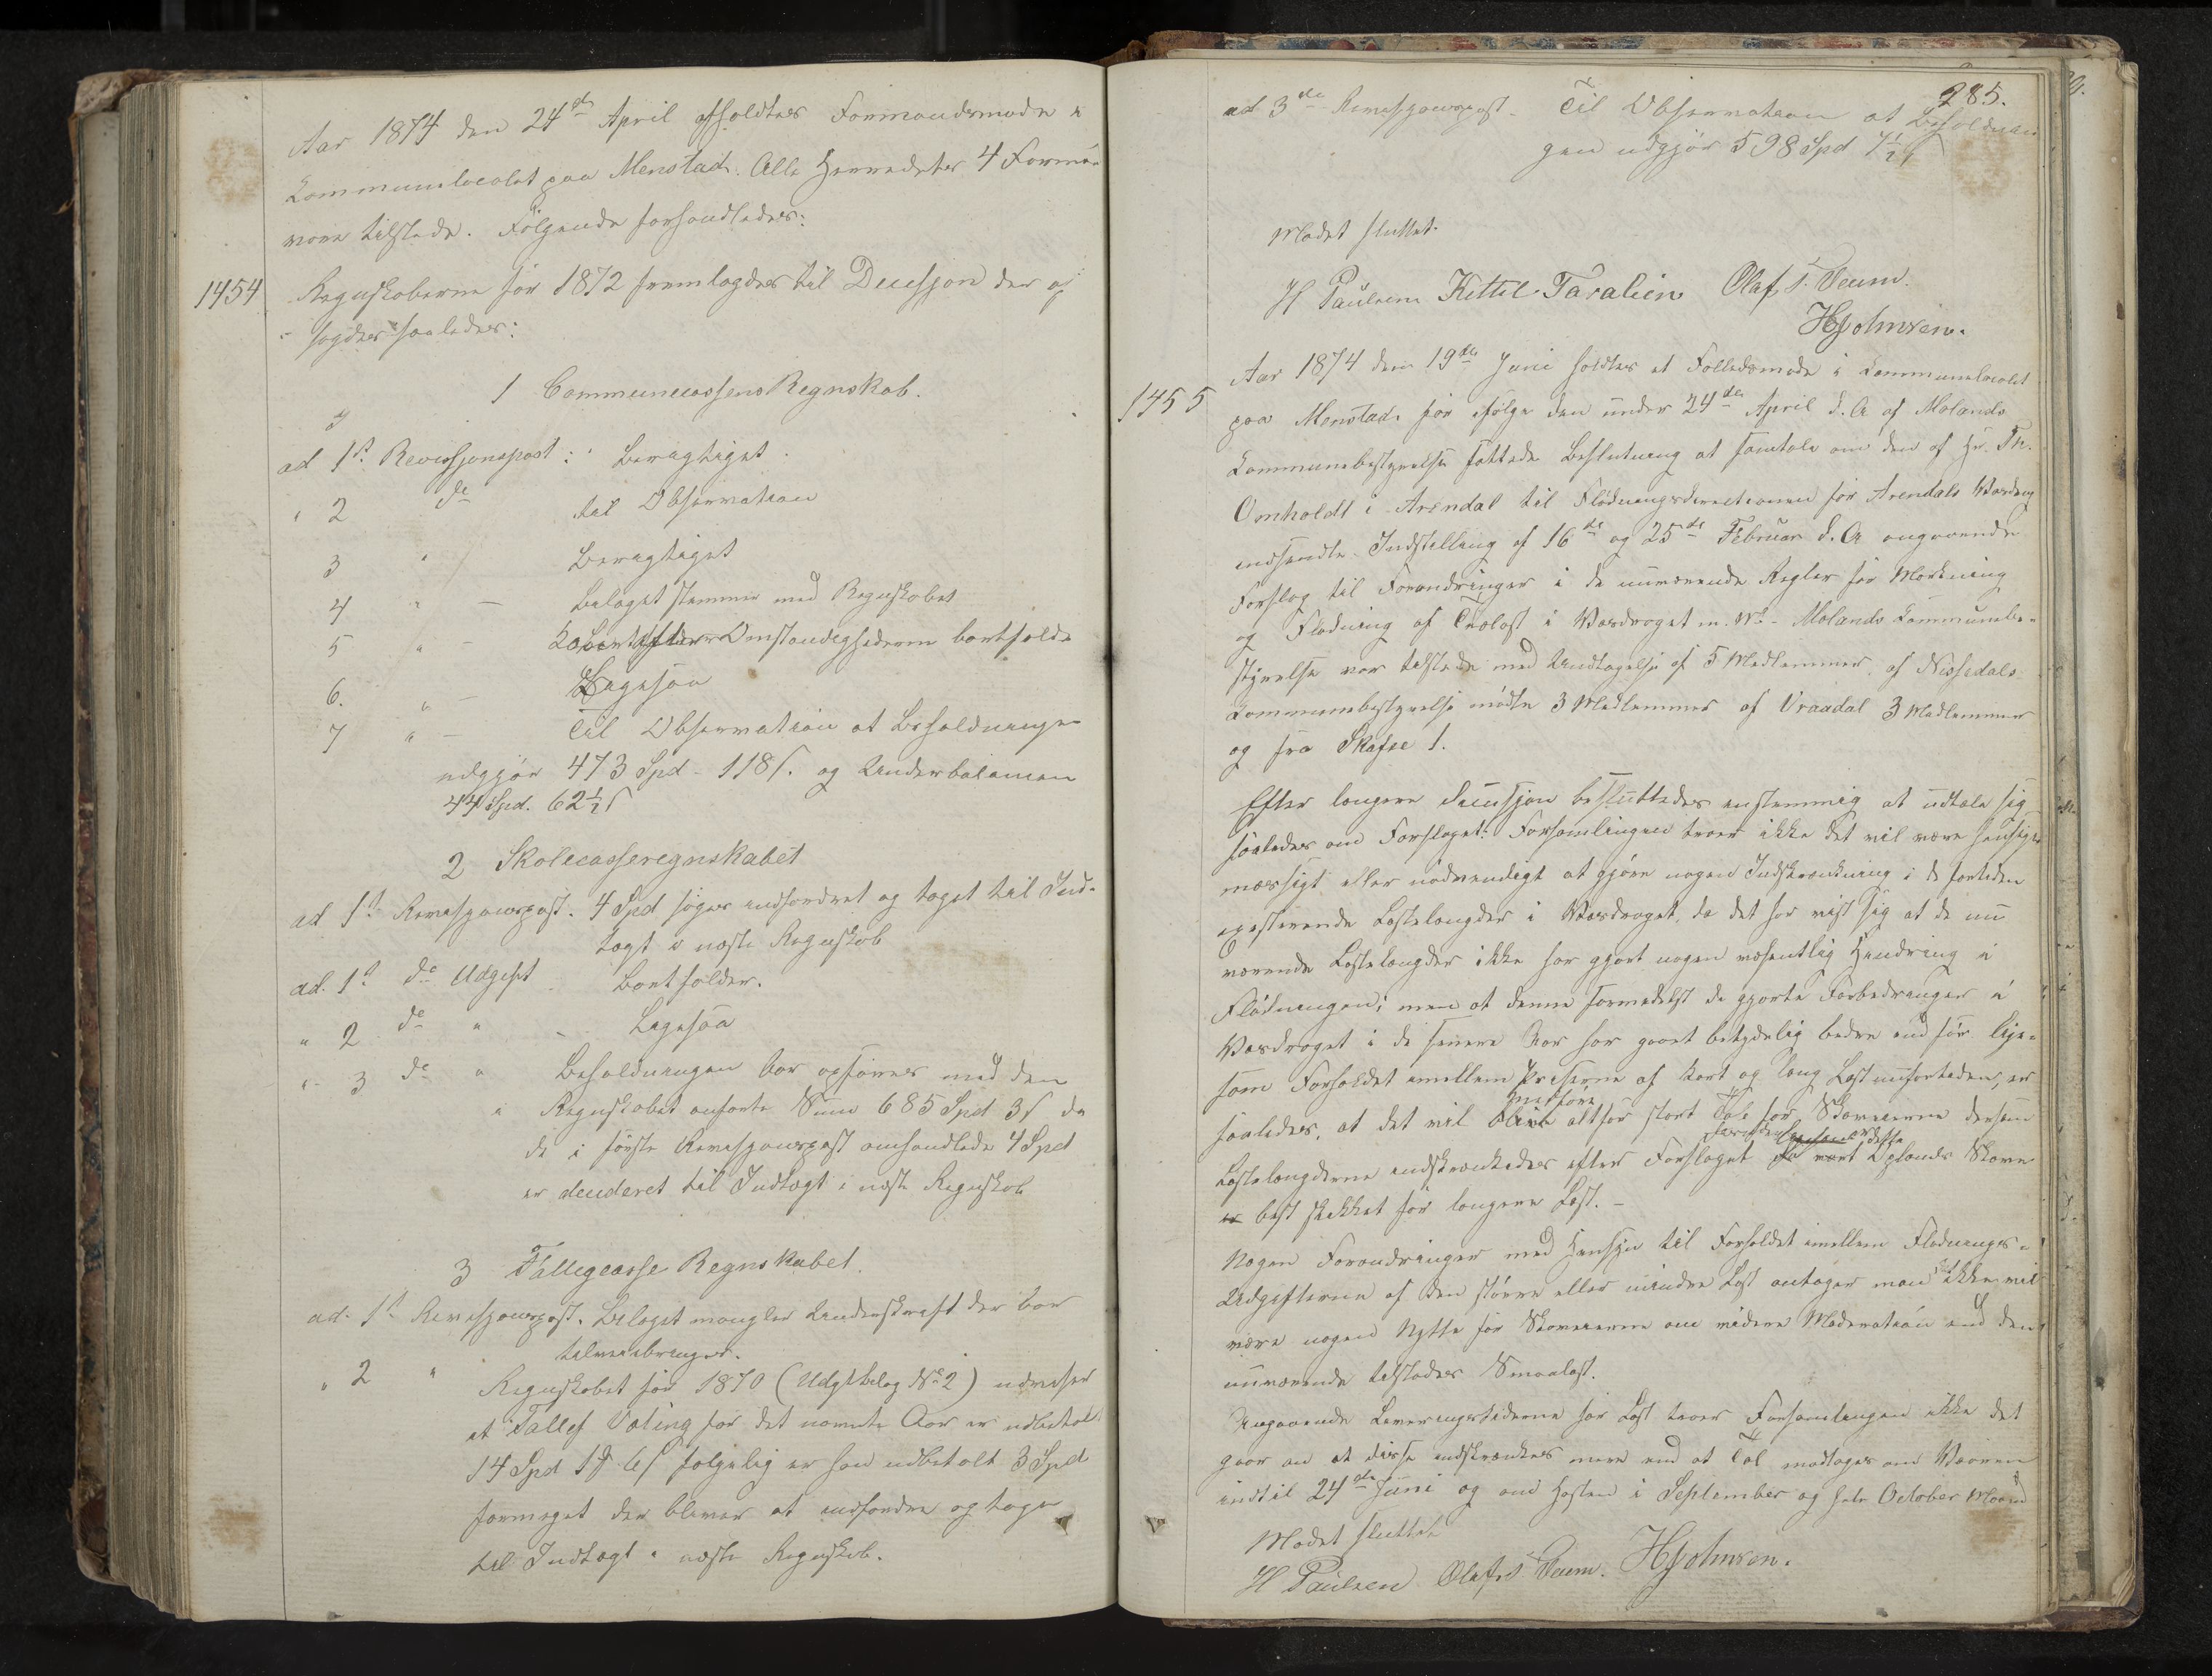 Aar 1874 den 24de April afholdtes Formandsmøde i
Kommunelocalet paa Menstad. Alle Herredets 4 Formæn
vare tilstede. Følgende forhandledes:
1454 Regnskaberne for 1872 fremlagdes til Decisjon der af
sagdes saaledes:
1 Communecassens Regnskab.
ad 1st Revisjonspost: Berigtiget.
" 2 de til Observation
3 " Berigtiget
4 " — Bilaget stemmer med Regnskabet
5 " — efter Omstændighederne bortfalde
6. " — Ligesaa
7 " — Til Observation at Beholdningen
udgjør 473 Spd - 118 s. og Underbalancen
44 Spd. 62½ s
2 Skolecasseregnskabet
ad 1st Revisjonspost. 4 Spd søges indfordret og taget til Ind-
tægt i næste Regnskab
ad. 1st de Udgift - Bortfalder.
" 2 de " - Ligesaa
" 3 de " Beholdningen bør opføres med den
i Regnskabet anførte Sum 685 Spd 3 s da
de i første Revisjonspost omhandlede 4 Spd
er decideret til Indtægt i næste Regnskab
3 Fattigcasse Regnskabet.
ad. 1st Revisjonspost. Bilaget mangler Underskrift der bør
tilveiebringes.
" 2 " Regnskabet for 1870 (Udgtbilag No 2) udviser
at Tallef for det nævnte Aar er udbetalt
14 Spd 1 6 s følgelig er han udbetalt 3 Spd
formeget der bliver at indfordre og tage
til Indtægt i næste Regnskab.
285.
ad 3de Revisjonspost - Til Observation at Beholdnin
gen udgjør 598 Spd
Mødet sluttet.
H Paulsen Kittil Taralien Olaf T. Veum.
HJohnsen.
1455 Aar 1874 den 19de Juni holdtes et Fællesmøde i Kommunelocalet
paa Menstad for ifølge den under 24de April d. A af Molands
Kommunebestyrelse fattede Beslutning at samtale om den af Hr. Th.
Omholdt i Arendal til Flødningsdirectionen for Arendals Vasdrag
indsendte Indstilling af 16de og 25de Februar d. A angaaende
Forslag til Forandringer i de nuværende Regler for Mærkning
og Flødning af Trælast i Vasdraget m. V. - Molands Kommunebe-
styrelse var tilstede med Undtagelse af 5 Medlemmer, af Nissedals
Kommunebestyrelse mødte 3 Medlemmer af Vraadal 3 Medlemmer
og fra Skafse 1.
Efter længere Discusjon besluttedes enstemmig at udtale sig
saaledes om Forslaget: Forsamlingen troer ikke det vil være hensigts
mæssigt eller nødvendigt at gjøre nogen Indskrænkning i de fortiden
existerende Lastelængder i Vasdraget, da det har vist sig at de nu
værende Lastelængder ikke har gjort nogen væsentlig Hindring i
Flødningen; men at denne formedelst de gjorte Forbedringer i
Vasdraget i de senere Aar har gaaet betydelig bedre end før lige-
som Forholdet imellem Priserne af kort og lang Last nufortiden, er
saaledes, at det vil medføre altfor stort Tab for Skoveierne dersom
Lastelængderne indskrænkedes efter Forslaget disse Oplands Skove
er best skikket for længere Last. -
Nogen Forandringer med Hensyn til Forholdet imellem Flødnings-
Udgifterne af den større eller mindre Last antager man ikke vil
være nogen Nytte for Skoveierne om videre Moderation end den
nuværende tilstodes Smaalast.
Angaaende Leveringstiderne for Last troer Forsamlingen ikke det
gaar an at disse indskrænkes mere end at Tøl modtages om Vaaren
indtil 24de Juni og om Høsten i September og hele October Maaned
Mødet sluttet
H Paulsen Olaf T Veum. HJohnsen.